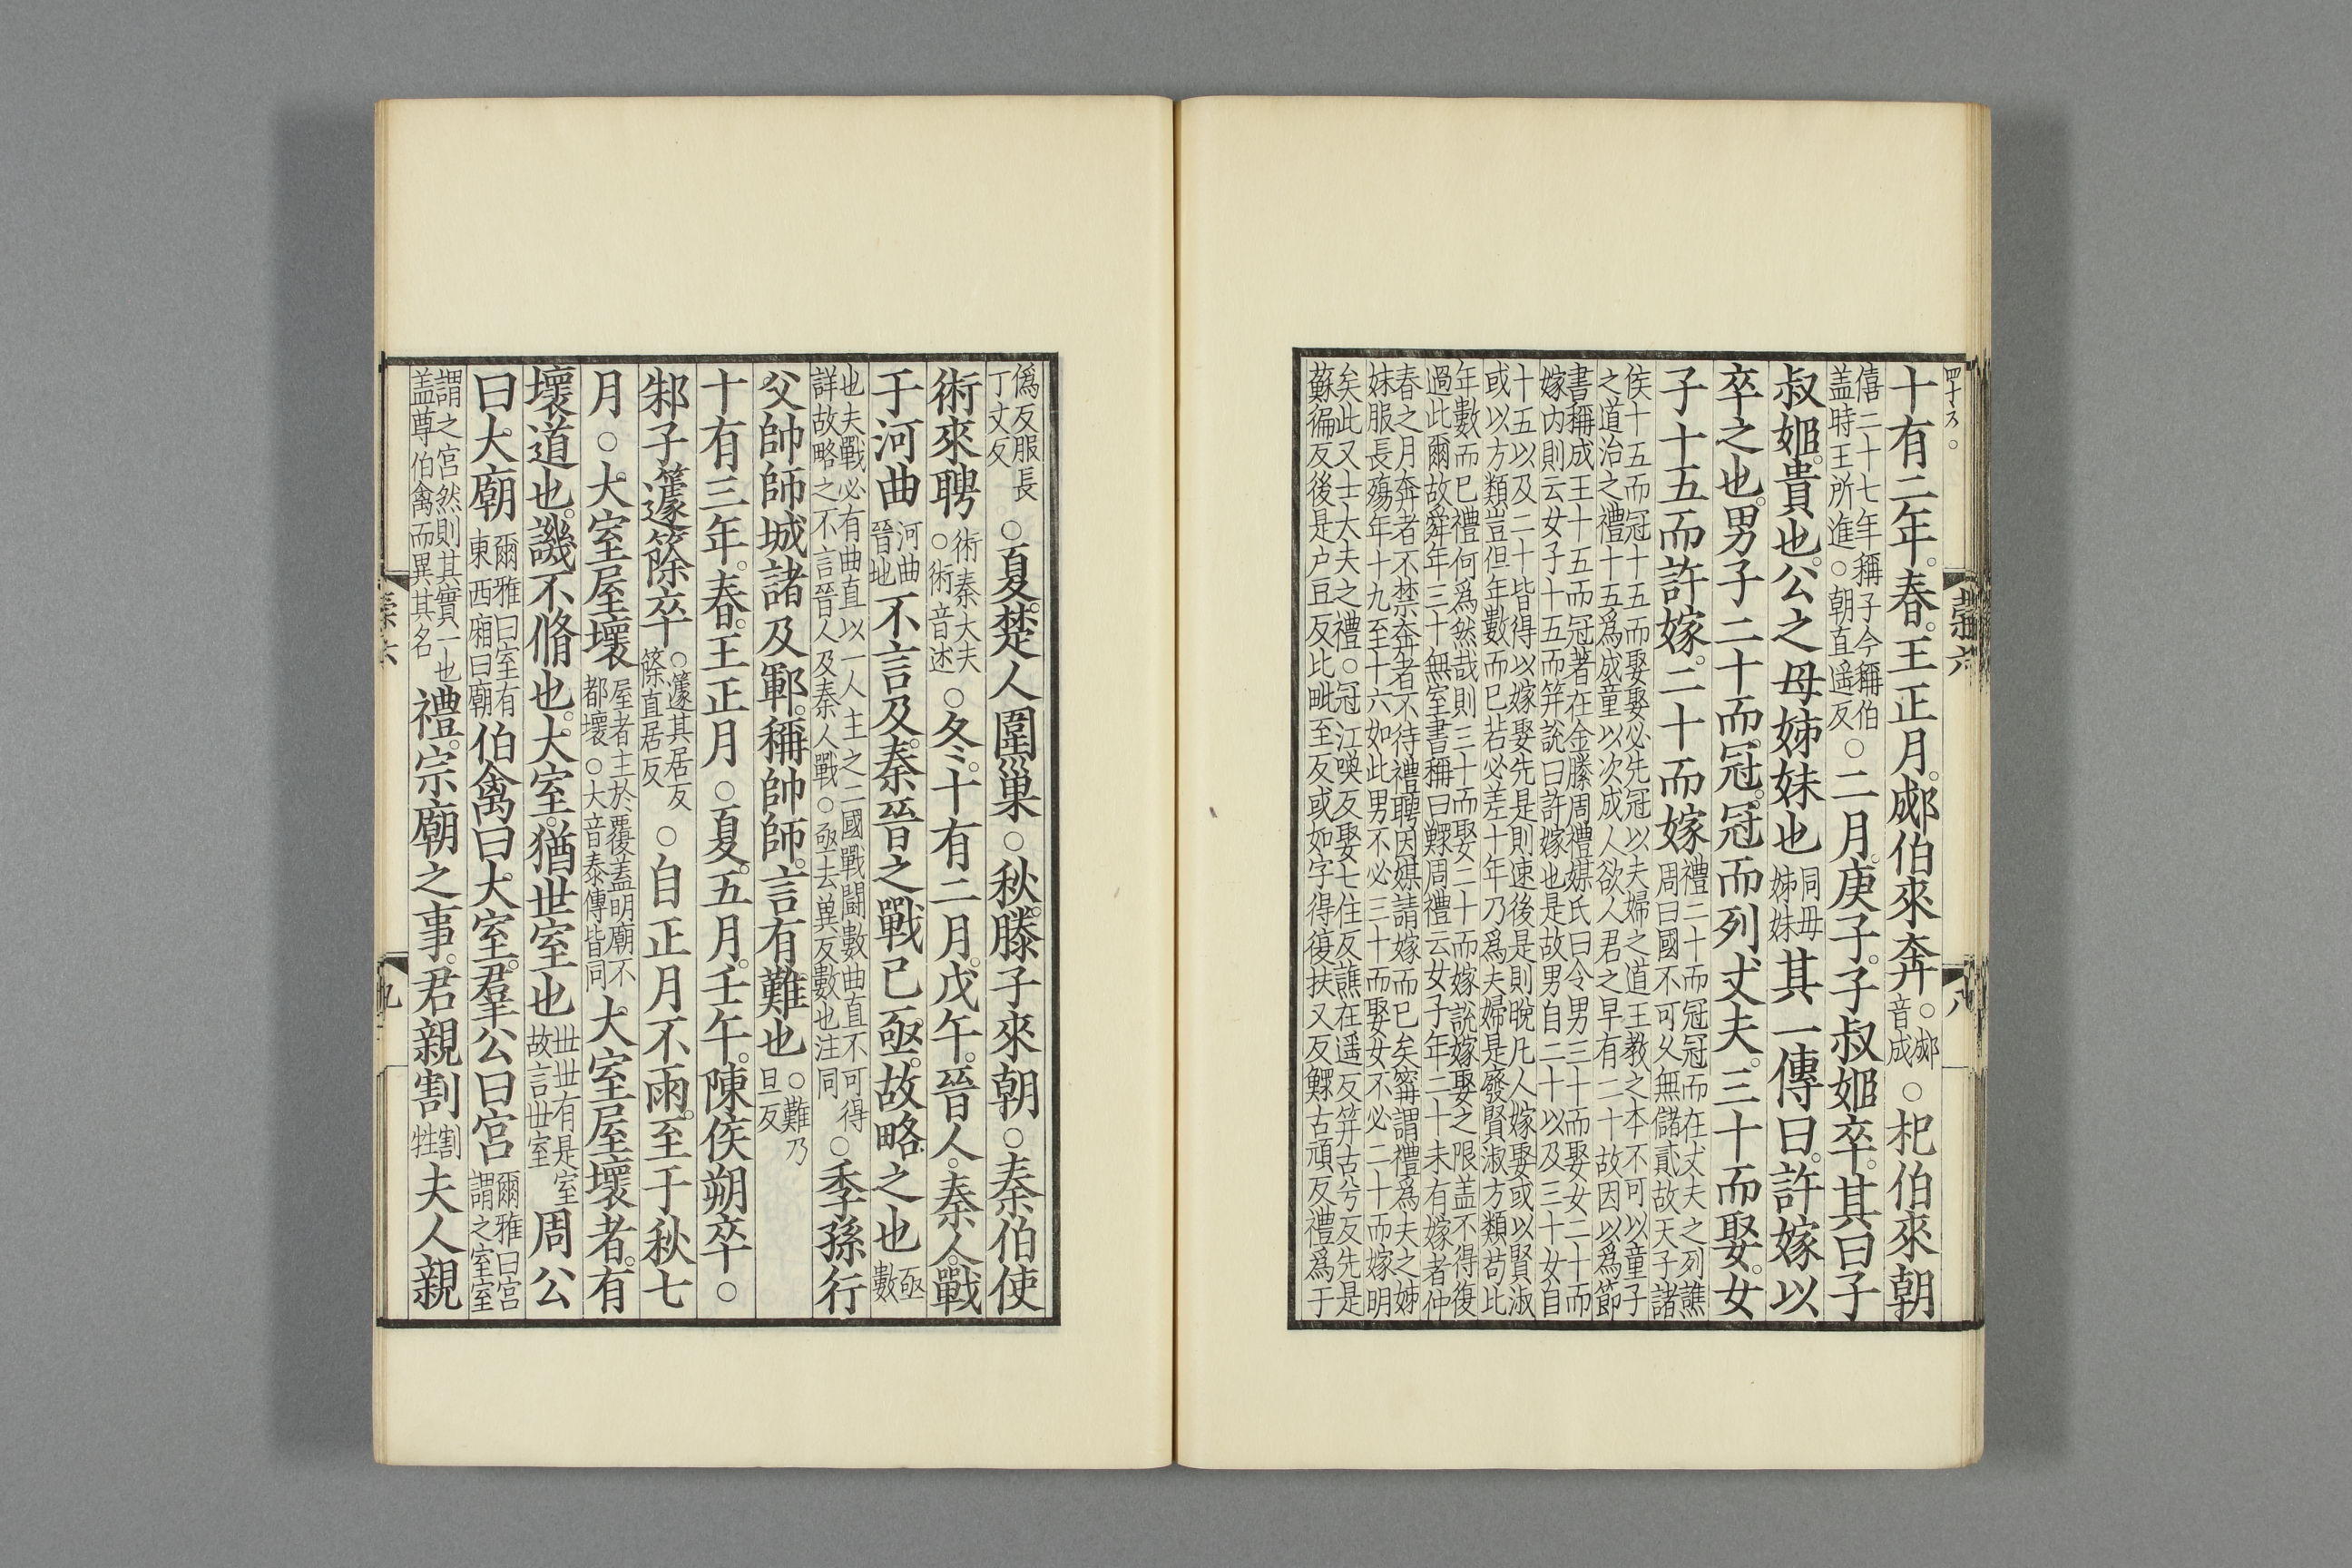 四十六。
十有二年。春。王正月。郕伯來奔○郕音成○杞伯來朝
僖二十七年稱子今稱伯盖時王所進○朝直遥反○二月。庚子。子叔姬卒。其曰子
叔姬。貴也。公之母姊妹也同毋姊妹其一傳曰。許嫁以
卒之也。男子二十而冠。冠而列丈夫。三十而娶。女
子十五而許嫁。二十而嫁禮二十而冠冠而在丈夫之列譙周曰國不可乆無儲貳故天子諸
侯十五而冠十五而娶娶必先冠以夫婦之道王教之本不可以童子之道治之禮十五爲成童以次成人欲人君之早有二十故因以爲節
書稱成王十五而冠著在金縢周禮媒氏曰令男三十而娶女二十而嫁内則云女子十五而笄說曰許嫁也是故男自二十以及三十女自
十五以及二十皆得以嫁娶先是則速後是則晚凡人嫁娶或以賢淑或以方類豈但年數而已若必差十年乃爲夫婦是廢賢淑方類苟比
年數而已禮何爲然哉則三十而娶二十而嫁說嫁娶之限盖不得復過此爾故舜年三十無室書稱曰鰥周禮云女子年二十未有嫁者仲
春之月奔者不禁奔者不待禮聘因媒請嫁而已矣甯謂禮爲夫之姊妹服長殤年十九至十六如此男不必三十而娶女不必二十而嫁明
矣此又士大夫之禮○冠江喚反娶七住反譙在遥反笄古兮反先是蘇徧反後是户豆反比毗至反或如字得復扶又反鰥古頑反禮爲于
僞反服長丁丈反○夏。楚人圍巢○秋。滕子來朝○秦伯使
術來聘術秦大夫○術音述○冬。十有二月。戊午。晉人。秦人。戰
于河曲河曲晉地不言及。秦晉之戰已亟。故略之也亟數
也夫戰必有曲直以一人主之二國戰鬪數曲直不可得詳故略之不言晉人及秦人戰○亟去異反數也注同○季孫行
父帥師城諸及鄆。稱帥師。言有難也○難乃旦反
十有三年。春。王正月○夏。五月。壬午。陳侯朔卒○
邾子籧篨卒○籧其居反篨直居反○自正月不雨。至于秋七
月○大室屋壞屋者主於覆蓋明廟不都壞○大音泰傳皆同大室屋壞者。有
壞道也。譏不脩也。大室。猶世室也丗丗有是室故言丗室周公
曰大廟爾雅曰室有東西廂曰廟伯禽曰大室。羣公曰宫爾雅曰宫謂之室室
謂之宫然則其實一也盖尊伯禽而異其名禮。宗廟之事。君親割割牲夫人親